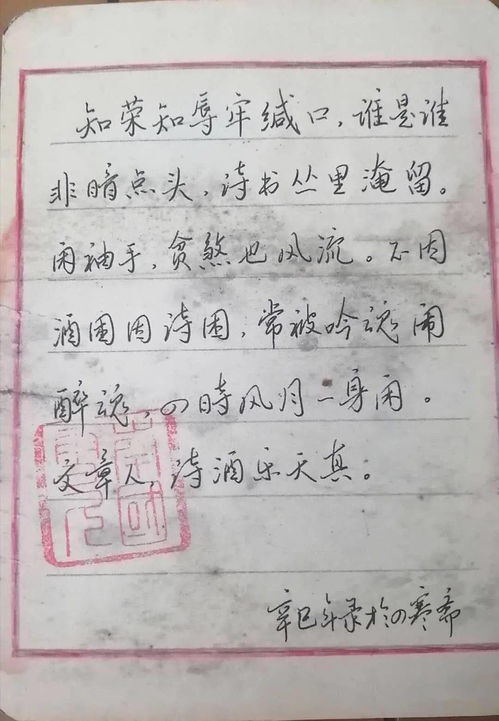 知荣知辱牢缄口,谁是谁
非暗点头,诗书丛里淹留。
闲袖手,贫煞也风流。不因
酒困因诗困,常被吟魂闹
醉魂,四時风月一身闲。
文章人,诗酒乐天真。
辛巳年录於四寒斋